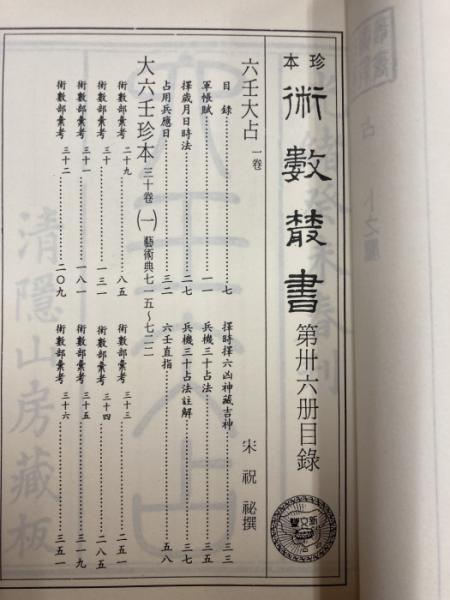 珍本
術數叢書
第卅六册目錄
六壬大占 一卷
宋 祝 祕撰
目錄……七
軍帳賦……一一
擇歲月日時法……二七
占用兵應日……三二
擇時擇六凶神藏吉神……三三
兵機三十占法……三五
兵機三十占法註解……三七
六壬直指……五八
大六壬珍本 三十卷 (一) 藝術典七一五~七二二
術數部彙考 二十九……八五
術數部彙考 三十……一三一
術數部彙考 三十一……一八一
術數部彙考 三十二……二〇九
術數部彙考 三十三……二五一
術數部彙考 三十四……二八五
術數部彙考 三十五……三一九
術數部彙考 三十六……三五一
清隱山房藏板